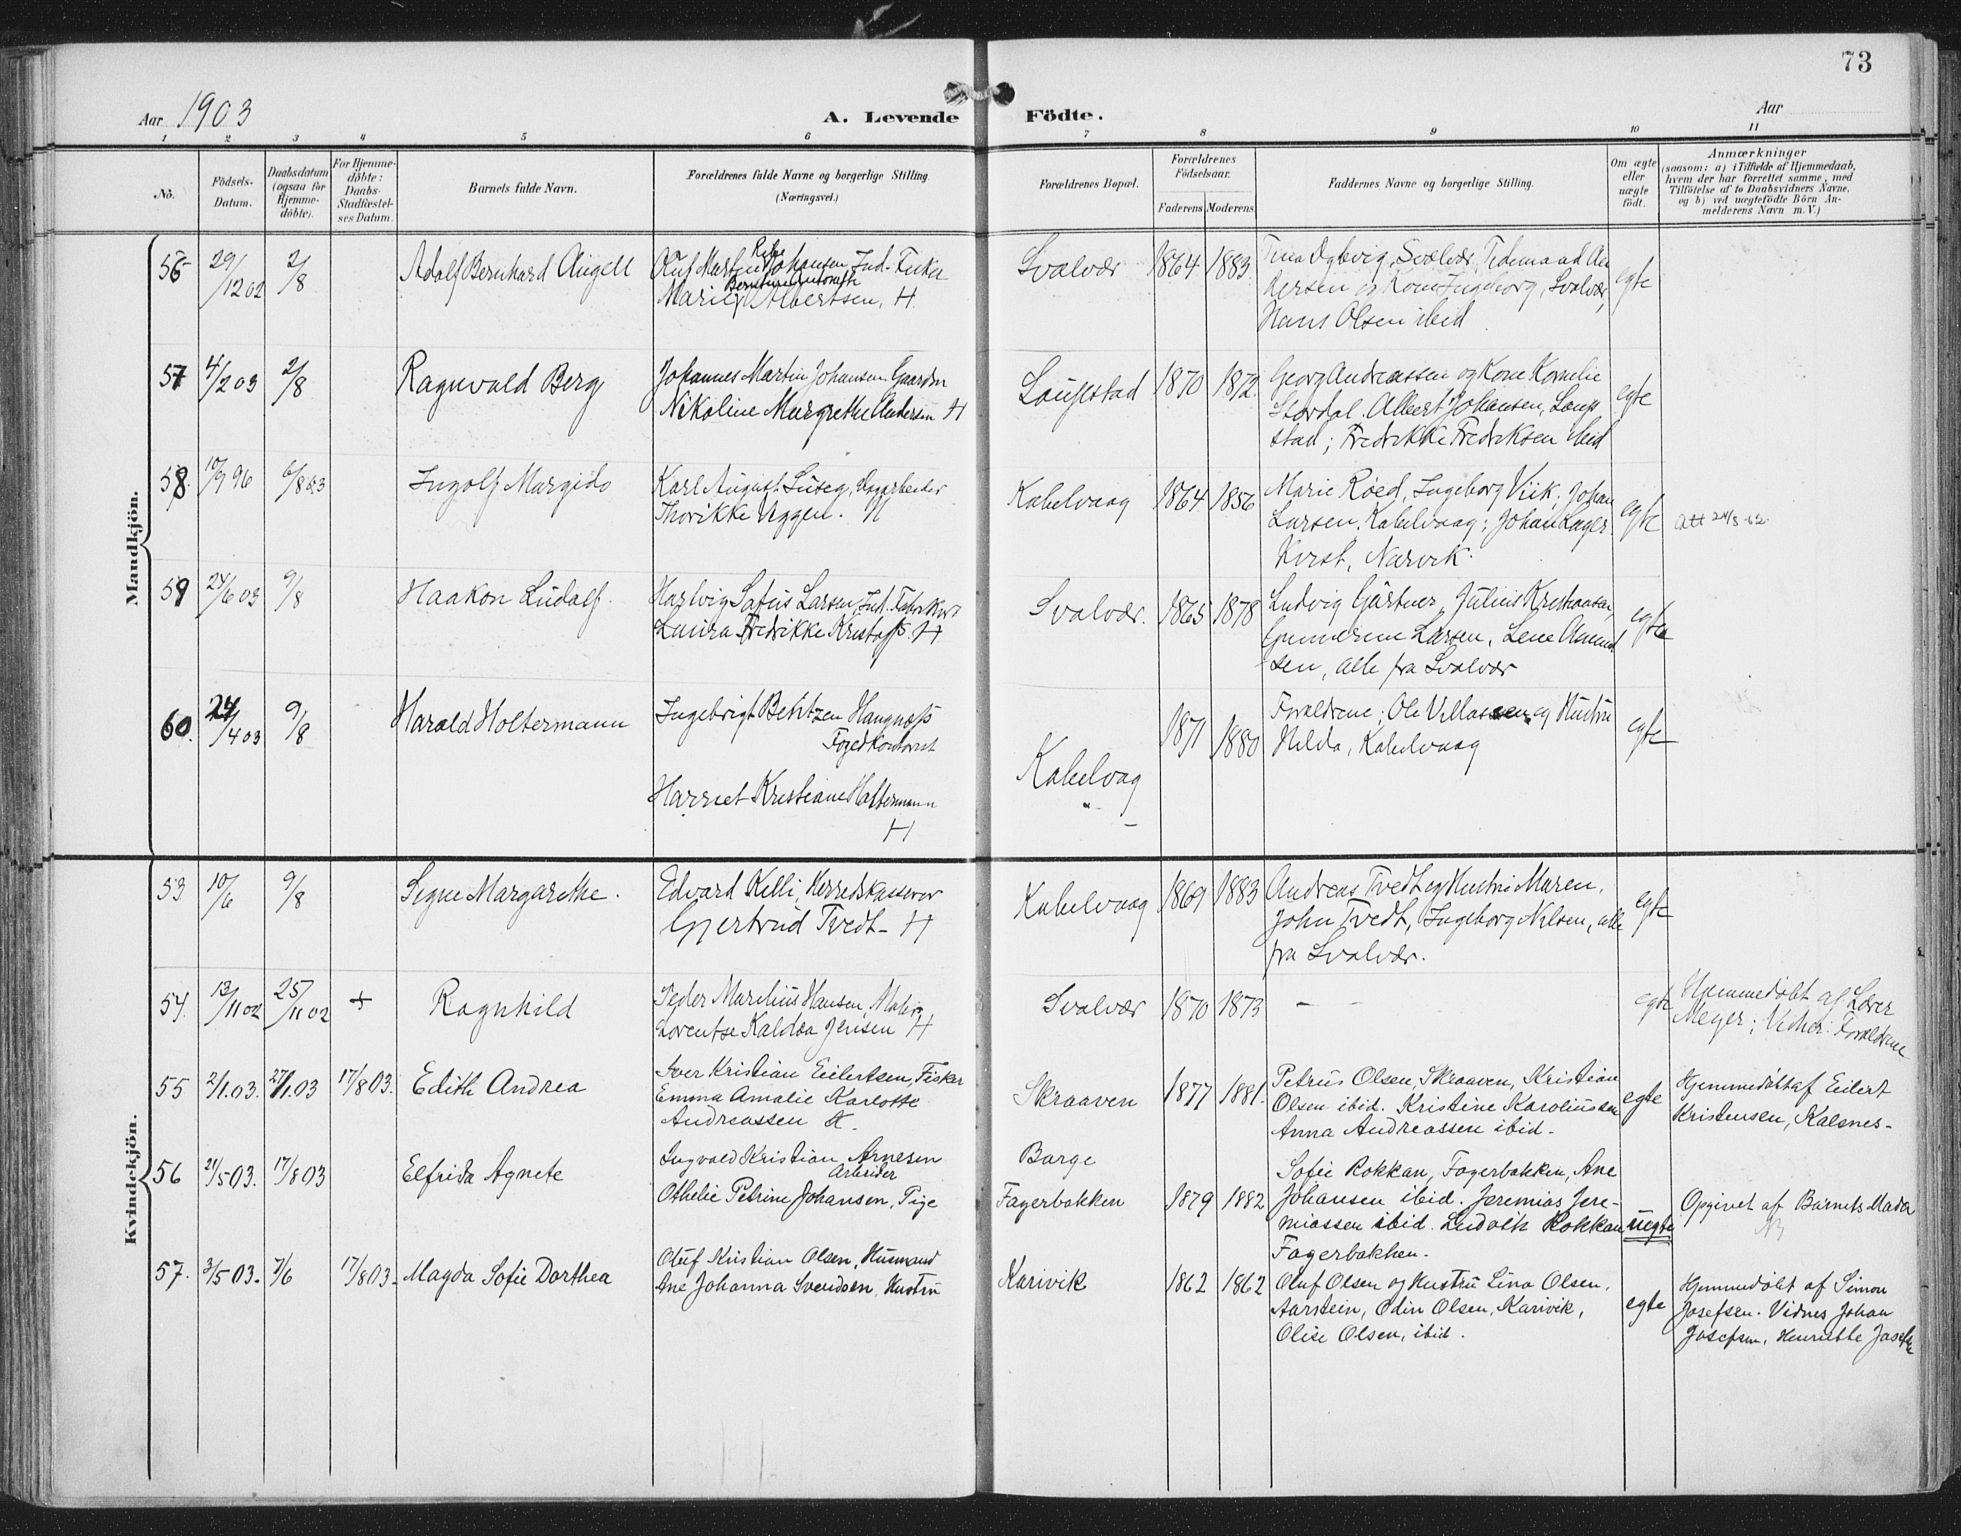 73
Aar 1903
A. Levende Födte.
Aar
1 2 3 4 5 6 7 8 9 10 11
No.
Födsels-Datum.
Daabsdatum (ogsaa for Hjemme-döbte).
For Hjemme-döbte: Daabs-Stadfæstel-ses Datum.
Barnets fulde Navn.
Forældrenes fulde Navne og borgerlige Stilling. (Næringsvei.)
Forældrenes Bopæl.
Forældrenes Födselsaar.
Faderens Moderens
Faddernes Navne og borgerlige Stilling.
Om ægte eller uægte födt.
Anmærkninger
(saasom: a) i Tilfælde af Hjemmedaab,
hvem der har forrettet samme, med
Tilföielse af to Daabsvidners Navne,
og b) ved uægtefödte Börn An-
melderens Navn m. V.)
Mandkjön.
56 29/12 02 2/8 Adolf Bernhard Angell
Oluf Martin Johansen, Ind. Fisker
Marie Albertsen, H
Svolvær 1864 1883
Svolvær,
Ingeborg, Svolvær,
Hans Olsen ibid
egte
57 4/2 03 2/8 Ragnvald Berg
Johannes Martin Johansen Gaardm
Nikoline Margrethe Andersen H
Laupstad 1870 1872
Georg Andreassen og Kone Kornelie
Stordal. Albert Johansen, Laup
stad; Fredrikke Fredriksen ibid
egte
58. 10/9 96 6/8 03 Ingolf Margido
Karl August Dagarbeider
Thorikke Viggen. H
Kabelvaag 1864 1856
Marie Röed, Ingeborg Viik, Johan
Larsen, Kabelvaag; Johan
Narvik.
egte
att 24/3-62.
59 24/6 03 9/8 Haakon Ludolf.
Hartvig Larsen, Ind.
Laura Fredrikke H
Svolvær. 1865 1878
Ludvig Gärtner, Julius Kristiansen,
Larsen, Lene Amund
sen, alle fra Svolvær
egte
60. 24/4 03 9/8 Harald Holtermann
Ingebrigt Hangnæss
Fogedkontorist
Harriet Kristiane Holtermann
H
Kabelvaag 1871 1880
Forældrene; Ole og Hustru
Hilda, Kabelvaag
egte
Kvindekjön.
53 10/6 9/8 Signe Margarethe.
Edvard Killi, Herredskasserer
Gjertrud Tvedt - H
Kabelvaag 1869 1883
Andreas Tvedt og Hustru Maren,
John Tvedt, Ingeborg Nilsen, alle
fra Svolvær.
egte
54. 13/11 02 25/11 02 + Ragnhild
Peder Marelius Hansen, Maler,
Lorentse Kaldea Jensen H
Svolvær 1870 1873 — —
egte
Hjemmedöbt af Lærer
Meyer; Vidner: Forældrene
55 2/1.03. 27/1.03 17/8 03. Edith Andrea
Iver Kristian Eilertsen, Fisker
Emma Amalie Karlotte
Andreassen H.
Skraaven 1877 1881.
Petrus Olsen, Skraaven, Kristian
Olsen ibid. Kristine Karoliussen
Anna Andreassen ibid.
egte
Hjemmedöbt af Eilert
Kristensen, Kalsnes-
56 21/5 03. 17/8 03 Elfrida Agnete
Ingvald Kristian Arnesen
Arbeider
Othelie Petrine Johansen, Pige
Borge
Fagerbakken 1879 1882
Sofie Rokkan, Fagerbakken, Ane
Johansen ibid. Jeremias Jere-
miassen ibid. Ludvik Rokkan
Fagerbakken.
uegte
Opgivet af Barnets Moder
57. 3/5 03. 7/6 17/8 03. Magda Sofie Dorthea
Oluf Kristian Olsen, Husmand
Ane Johanna Svendsen, Hustru
Karivik 1862 1862
Oluf Olsen og Hustru Lina Olsen,
Aarstein, Odin Olsen, Karivik,
Olise Olsen, ibid.
egte
Hjemmedöbt af Simon
Josefsen. Vidnes Johan
Josefsen, Henriette